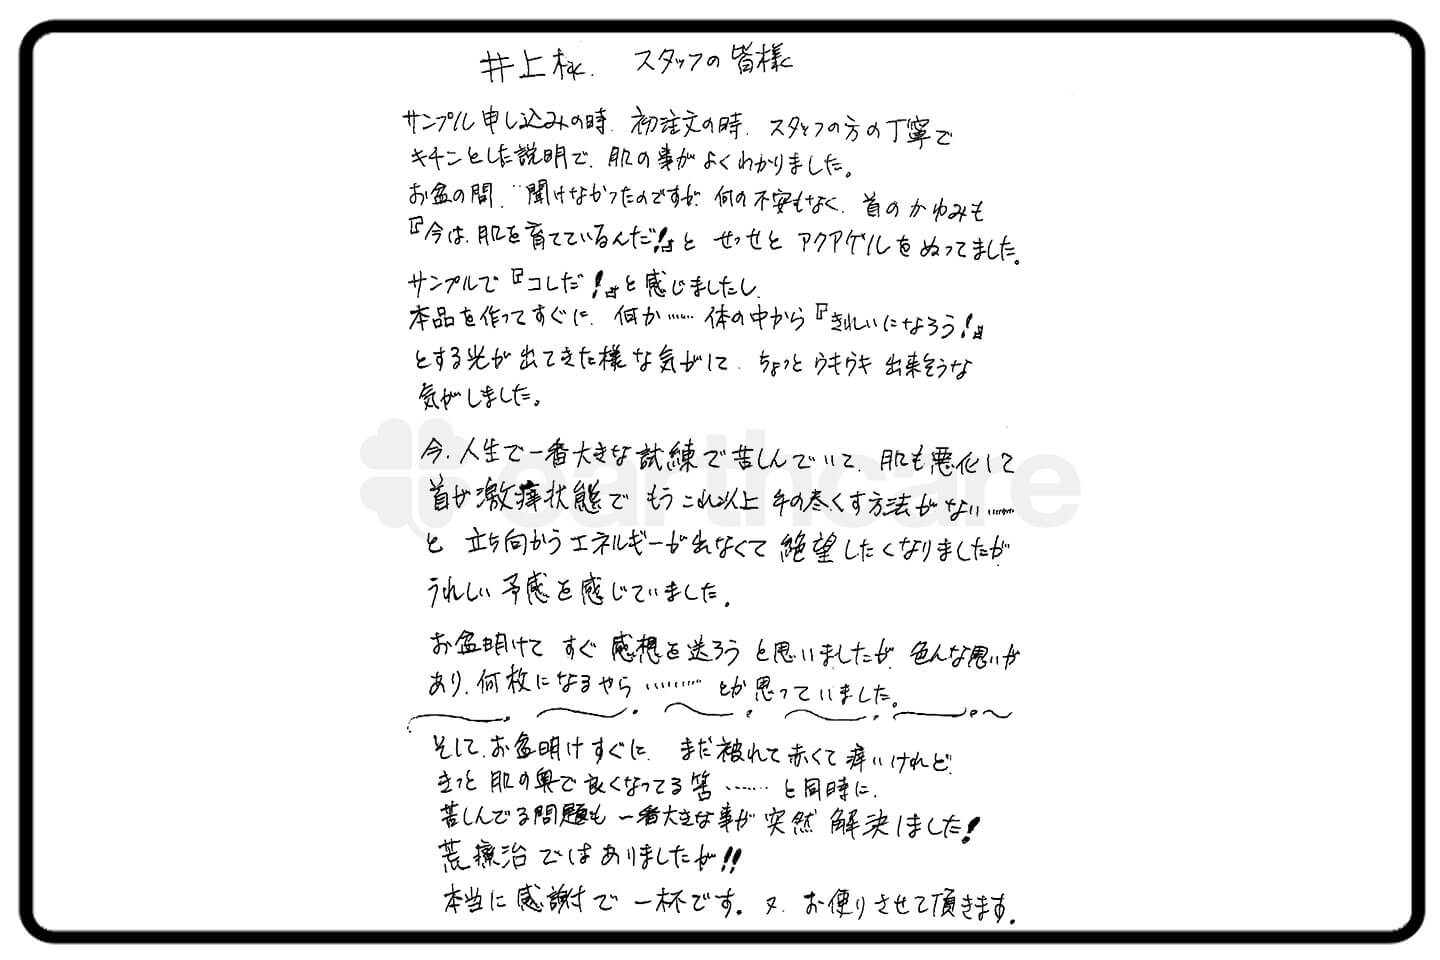 井上様. スタッフの皆様
サンプル申し込みの時. 初注文の時. スタッフの方の丁寧で
キチンとした説明で. 肌の事がよくわかりました。
お盆の間. 聞けなかったのですが 何の不安もなく. 首のかゆみも
『今は. 肌を育てているんだ!』と せっせと アクアゲルをぬってました。
サンプルで『コレだ!』と感じましたし.
本品を作ってすぐに. 何か…… 体の中から『きれいになろう!』
とする光が出てきた様な気がして. ちょっとウキウキ出来そうな
気がしました。
今. 人生で一番大きな試練で苦しんでいて. 肌も悪化して
首が激痒状態で もうこれ以上 手の尽くす方法がない……
と 立ち向かうエネルギーが出なくて 絶望したくなりましたが
うれしい予感を感じていました.
お盆明けて すぐ 感想を送ろうと思いましたが. 色んな思いが
あり. 何枚になるやら ……… とか思っていました。
そして. お盆明けすぐに. まだ被れて赤くて痒いけれど.
きっと 肌の奥で良くなってる筈 …… と同時に.
苦しんでる問題も 一番大きな事が突然解決しました!
荒療治ではありましたが!!
本当に感謝で一杯です。 又. お便りさせて頂きます.
earthcare